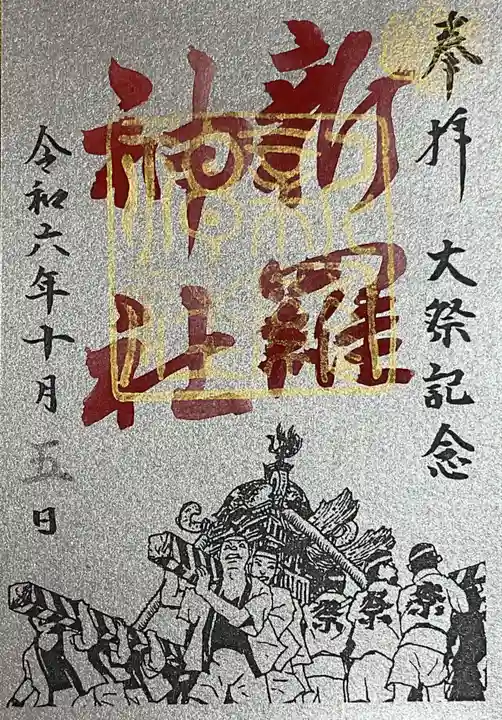 奉拝 大祭記念
新羅
神社
令和六年十月五日
祭
祭
祭